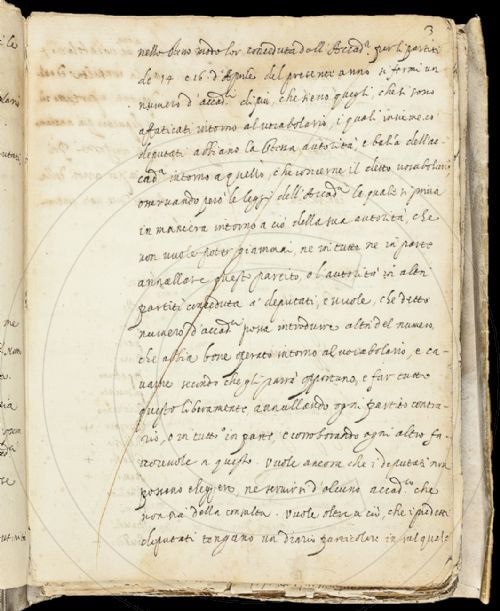 3
nello stesso modo lor conceduta dall'Accad.ª per li partiti
de' 14 e 16 d'Aprile del presente anno si formi un
numero d'accad.ci di più, che sieno quegli che si sono
affaticati intorno al vocabolario, i quali insieme co
deputati abbiano la stessa autorità, e balìa della ac-
cad.ª intorno a quello, che concerne il detto vocabolario
osservando però le leggi dell'Accad.ª la quale si priva
in maniera intorno a ciò della sua autorità, che
non vuole poter giammai, ne in tutto ne in parte
annullare questo partito, o l'autorità in altri
partiti conceduta a' deputati, e vuole, che detto
numero d'accad.ci possa introdurre altri del numero,
che abbia bene operato intorno al vocabolario, e ca-
varne secondo che gli parrà opportuno, e far tutto
questo liberamente, annullando ogni partito contra-
rio, o in tutto o in parte, e corroborando ogni altro fa-
vorevole a questo. Vuole ancora che i deputati non
possano eleggere, ne servirsi d'alcuno accad.co che
non sia della consulta. Vuole oltre a ciò, che i predetti
deputati tengano un diario particolare in sul quale